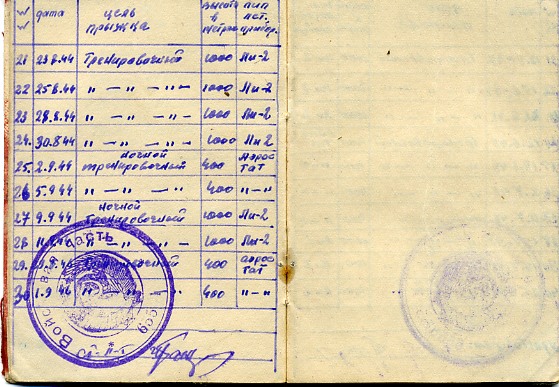 № дата цель прыжка высота в метрах тип лет. прибор.
21 23.8.44 Тренировочный 1000 Ли-2
22 25.8.44 " — " — " — " 1000 Ли-2
23 28.8.44 " — " — " — " 1000 Ли-2
24. 30.8.44 " — " — " — " 1000 Ли-2
25. 2.9.44 ночной тренировочный 400 Аэростат
26 5.9.44 " — " — " 400 " — "
27 9.9.44 ночной Тренировочной 1000 Ли-2
28 " — " — " 1000 Ли-2
29. 400 аэростат
30 " 400 " — "
Войсковая часть